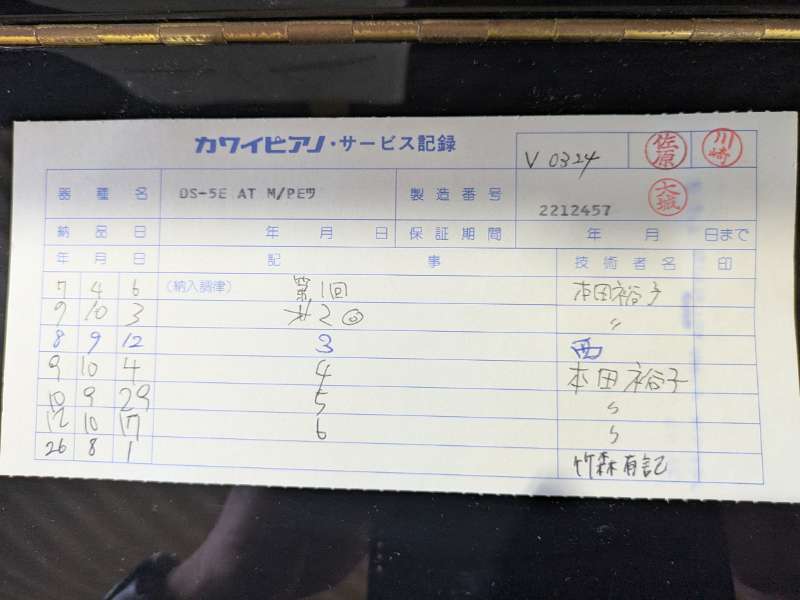 カワイピアノ・サービス記録
V 0324 佐原 川崎
器種名 DS-5E AT M/PEツ 製造番号 2212457 大城
納品日 年 月 日 保証期間 年 月 日まで
年 月 日 記事 技術者名 印
7 4 6 (納入調律) 第1回 本田裕子
7 10 3 #2回 〃
8 9 12 3 西
9 10 4 4 本田裕子
10 9 29 5 〃
12 10 17 6 〃
26 8 1 竹森有記